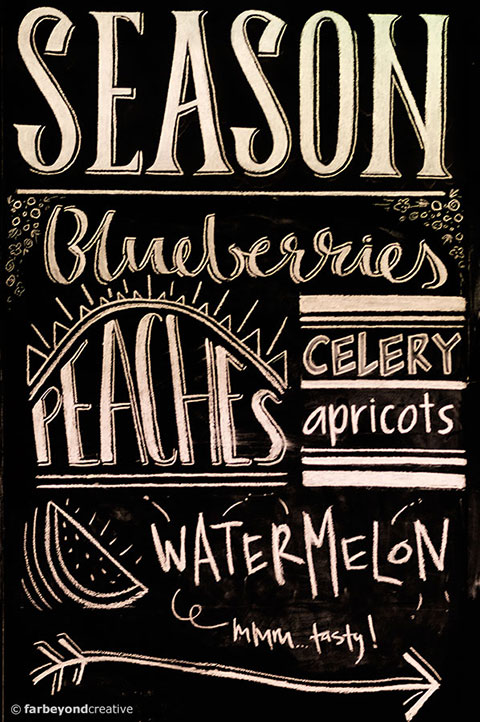 SEASON
Blueberries
PEACHES
CELERY
apricots
WATERMELON
mmm... tasty!
© farbeyondcreative